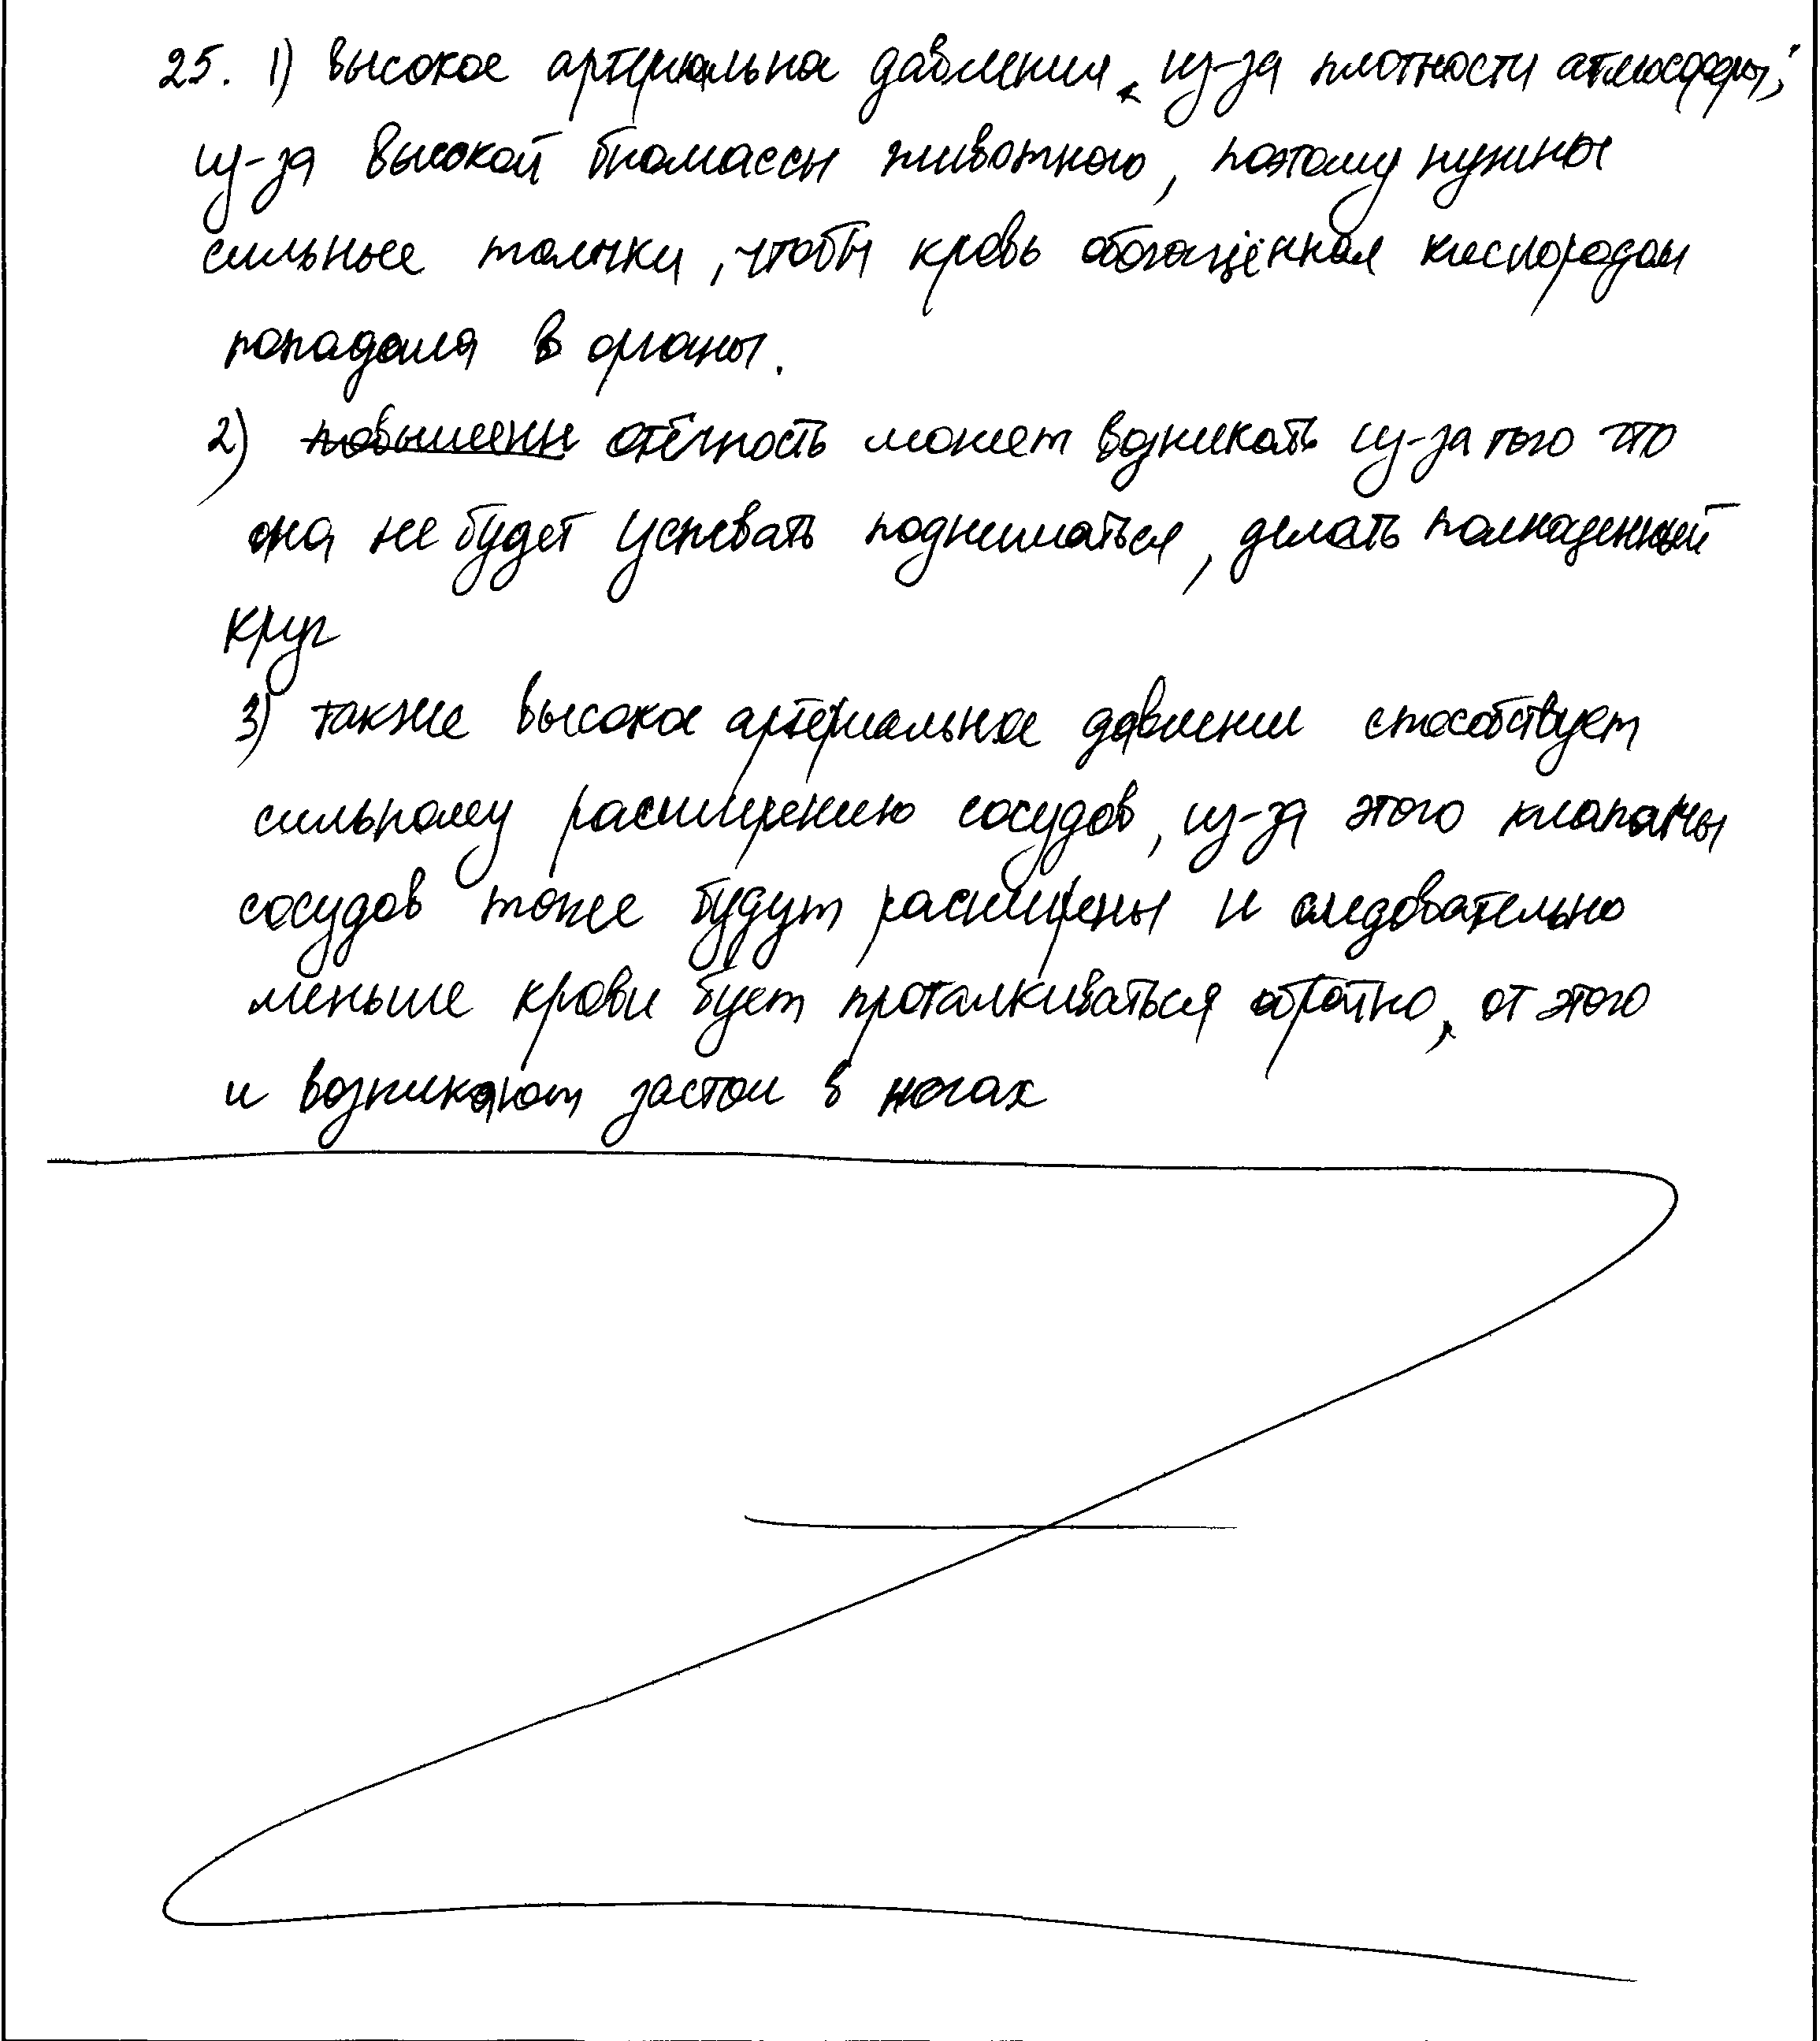 25. 1) высокое артериальное давления, из-за плотности атмосферы;
из-за высокой биомассы животного, поэтому нужны
сильные толчки, чтобы кровь обогащённая кислородом
попадала в органы.
2) повышенн отёчность может возникать из-за того что
она не будет успевать подниматься, делать полноценный
круг
3) также высокое артериальное давление способствует
сильному расширению сосудов, из-за этого клапаны
сосудов тоже будут расширены и следовательно
меньше крови бует проталкиваться обратно, от этого
и возникают застои в ногах